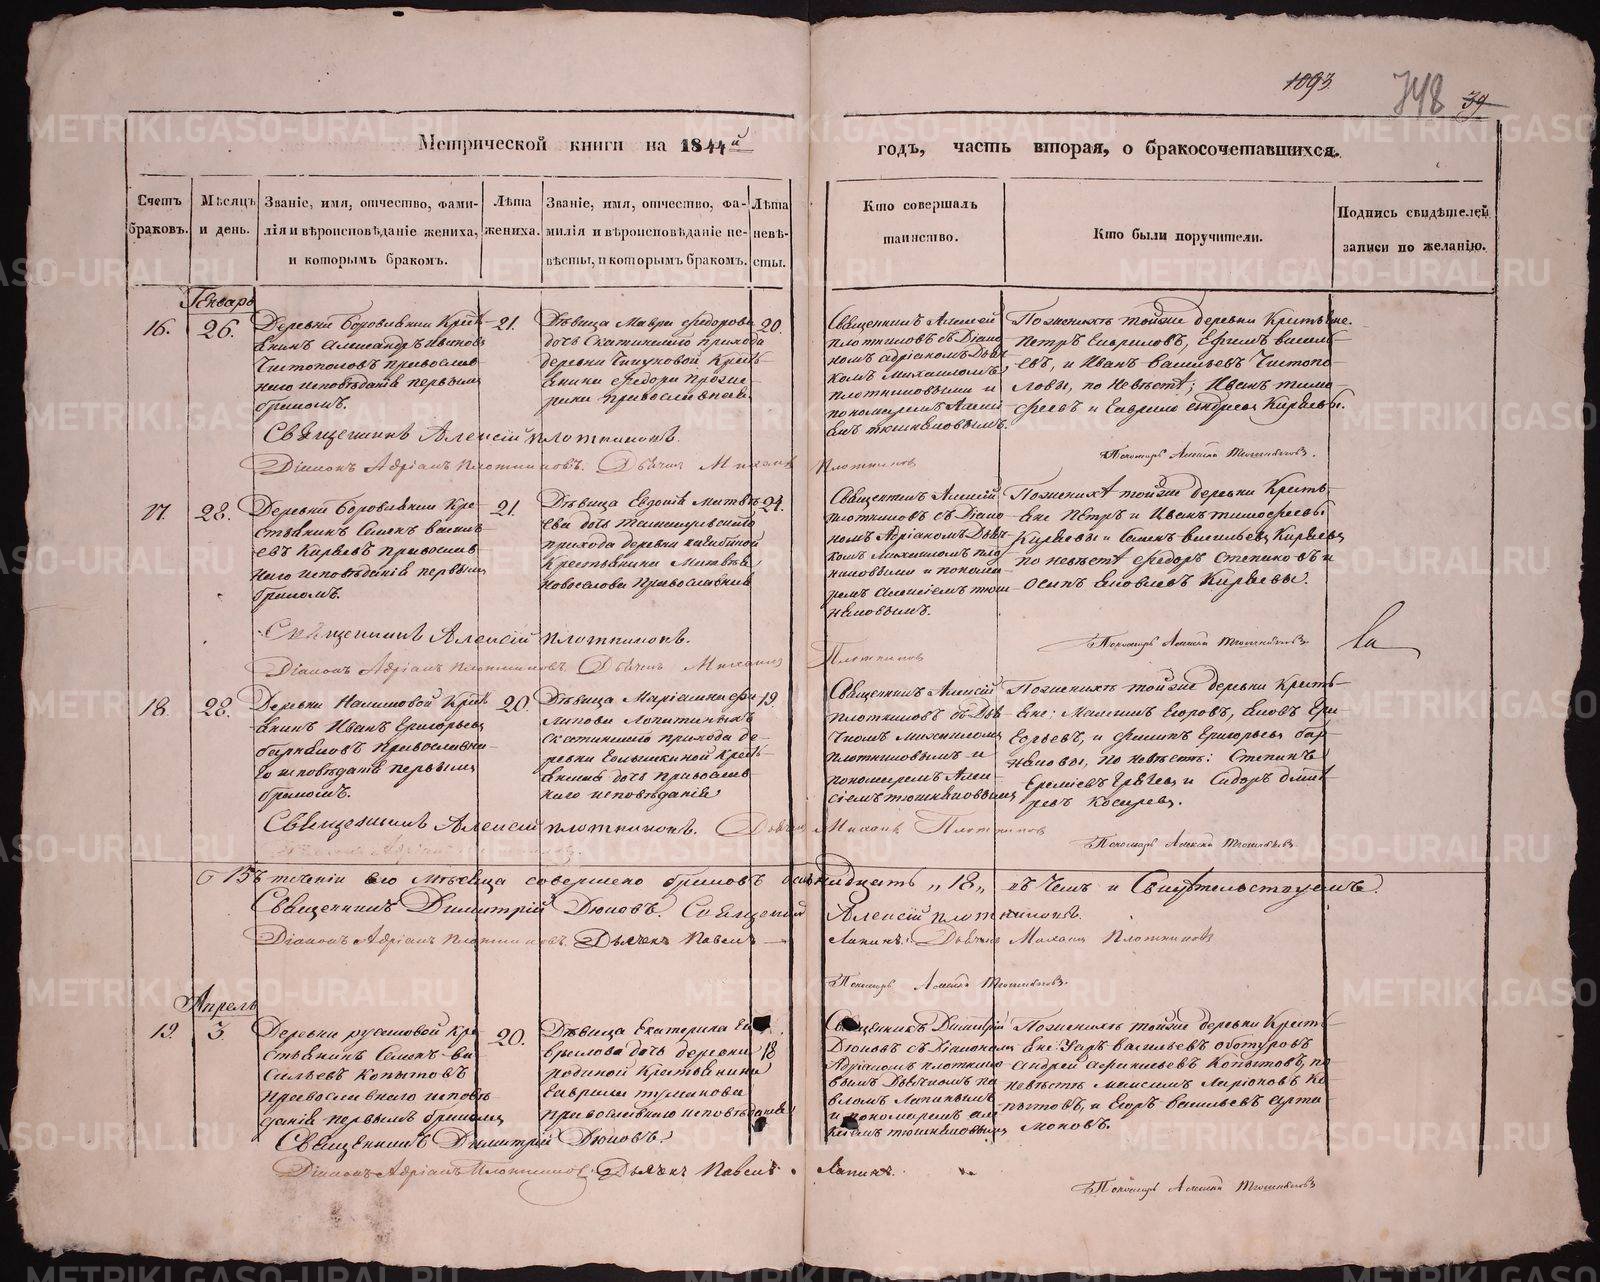 1093.
748
39
Метрической книги на 1844й годъ, часть вторая, о бракосочетавшихся.
Счетъ браковъ.
Мѣсяцъ и день.
Званіе, имя, отчество, фами-
лія и вѣроисповѣданіе жениха,
и которымъ бракомъ.
Лѣта
жениха.
Званіе, имя, отчество, фа-
милія и вѣроисповѣданіе не-
вѣсты, и которымъ бракомъ.
Лѣта
невѣ-
сты.
Кто совершалъ
таинство.
Кто были поручители.
Подпись свидѣтелей
записи по желанію.
Генварь
16.
26.
Деревни Боровлянки Крест-
янинъ Александръ Ивановъ
Чистополовъ православ-
наго исповѣданія первымъ
бракомъ.
21.
Дѣвица Мавра Федорова
дочь Скатинскаго прихода
деревни
православная.
20.
Священникъ Алексѣй
Плотниковъ съ Діако-
номъ Адріаномъ Дьяч-
комъ Михаиломъ
Плотниковыми и
пономаремъ Алексі-
емъ Тюшняковымъ.
По женихѣ тойже деревни Крестьяне.
Петръ Гавриловъ, Ефимъ Василь-
евъ, и Иванъ Васильевъ Чистопо-
ловы, по невѣстѣ; Иванъ Тимо-
феевъ и Гаврило Андреевъ Киряевы.
Священникъ Алексій Плотниковъ.
Діаконъ Адріанъ Плотниковъ. Дьячекъ Михаилъ Плотниковъ
Пономарь Алексѣй Тюшняковъ.
17.
28.
Деревни Боровлянки Кре-
стьянинъ Семенъ Василь-
евъ Киряевъ православ-
наго исповѣданія первымъ
бракомъ.
21.
Дѣвица Евдокія Матвѣ-
ева дочь
прихода деревни
Крестьянина Матвѣя
Новоселова православная
24.
Священникъ Алексій
Плотниковъ съ Діако-
номъ Адріаномъ Дьяч-
комъ Михаиломъ Пло-
тниковыми и понома-
ремъ Алексіемъ Тюш-
няковымъ.
По женихѣ тойже деревни Кресть-
яне Петръ и Иванъ Тимофеевы
Киряевы и Семенъ Васильевъ Киряевъ
по невѣстѣ Федоръ Степановъ и
Осипъ Яковлевъ Киряевы.
Священникъ Алексій Плотниковъ.
Діаконъ Адріанъ Плотниковъ. Дьячекъ Михаилъ Плотниковъ
Пономарь Алексѣй Тюшняковъ
18.
28.
Деревни Крест-
янинъ Иванъ Григорьевъ
православна-
го исповѣданія первымъ
бракомъ.
20.
Дѣвица
липова Лопатиныхъ
Скатинскаго прихода де-
ревни Крест-
янина дочь православ-
наго исповѣданія
19.
Священникъ Алексій
Плотниковъ съ Дья-
чкомъ Михаиломъ
Плотниковымъ и
пономаремъ Алек-
сіемъ Тюшняковымъ
По женихѣ тойже деревни Кресть-
яне: Максимъ Егоровъ, Яковъ Гри-
горьевъ, и Филипъ Григорьевъ
по невѣстѣ: Степанъ
и Сидоръ
Священникъ Алексій Плотниковъ. Дьячекъ Михаилъ Плотниковъ
Пономарь Алексѣй Тюшняковъ.
въ теченіи сего Мѣсяца совершено браковъ осмнадцать „18„ въ чемъ и Свидѣтельствуемъ.
Священникъ Димитрій Дюковъ. Священникъ Алексій Плотниковъ.
Діаконъ Адріанъ Плотниковъ. Дьячекъ Павелъ Лапинъ. Дьячекъ Михаилъ Плотниковъ
Пономарь Алексѣй Тюшняковъ.
Апрель
19.
3.
Деревни Русаковой Кре-
стьянинъ Семенъ Ва-
сильевъ Копытовъ
православнаго исповѣ-
данія первымъ бракомъ
20.
Дѣвица Екатерина Га-
врилова дочь деревни
Родиной Крестьянина
Гаврилы Туманова
православнаго исповѣданія
18
Священникъ Димитрій
Дюковъ съ Діакономъ
Адріаномъ Плотнико-
вымъ Дьячкомъ Па-
вломъ Лапинымъ
и пономаремъ Але-
ксіемъ Тюшняковымъ
По женихѣ тойже деревни Кресть-
яне: Васильевъ
Андрей Копытовъ, по
невѣстѣ Максимъ Ларіоновъ Ко-
пытовъ, и Егоръ Васильевъ Арта-
моновъ.
Священникъ Димитрій Дюковъ.
Діаконъ Адріанъ Плотниковъ. Дьячекъ Павелъ Лапинъ.
Пономарь Алексѣй Тюшняковъ
METRIKI.GASO-URAL.RU